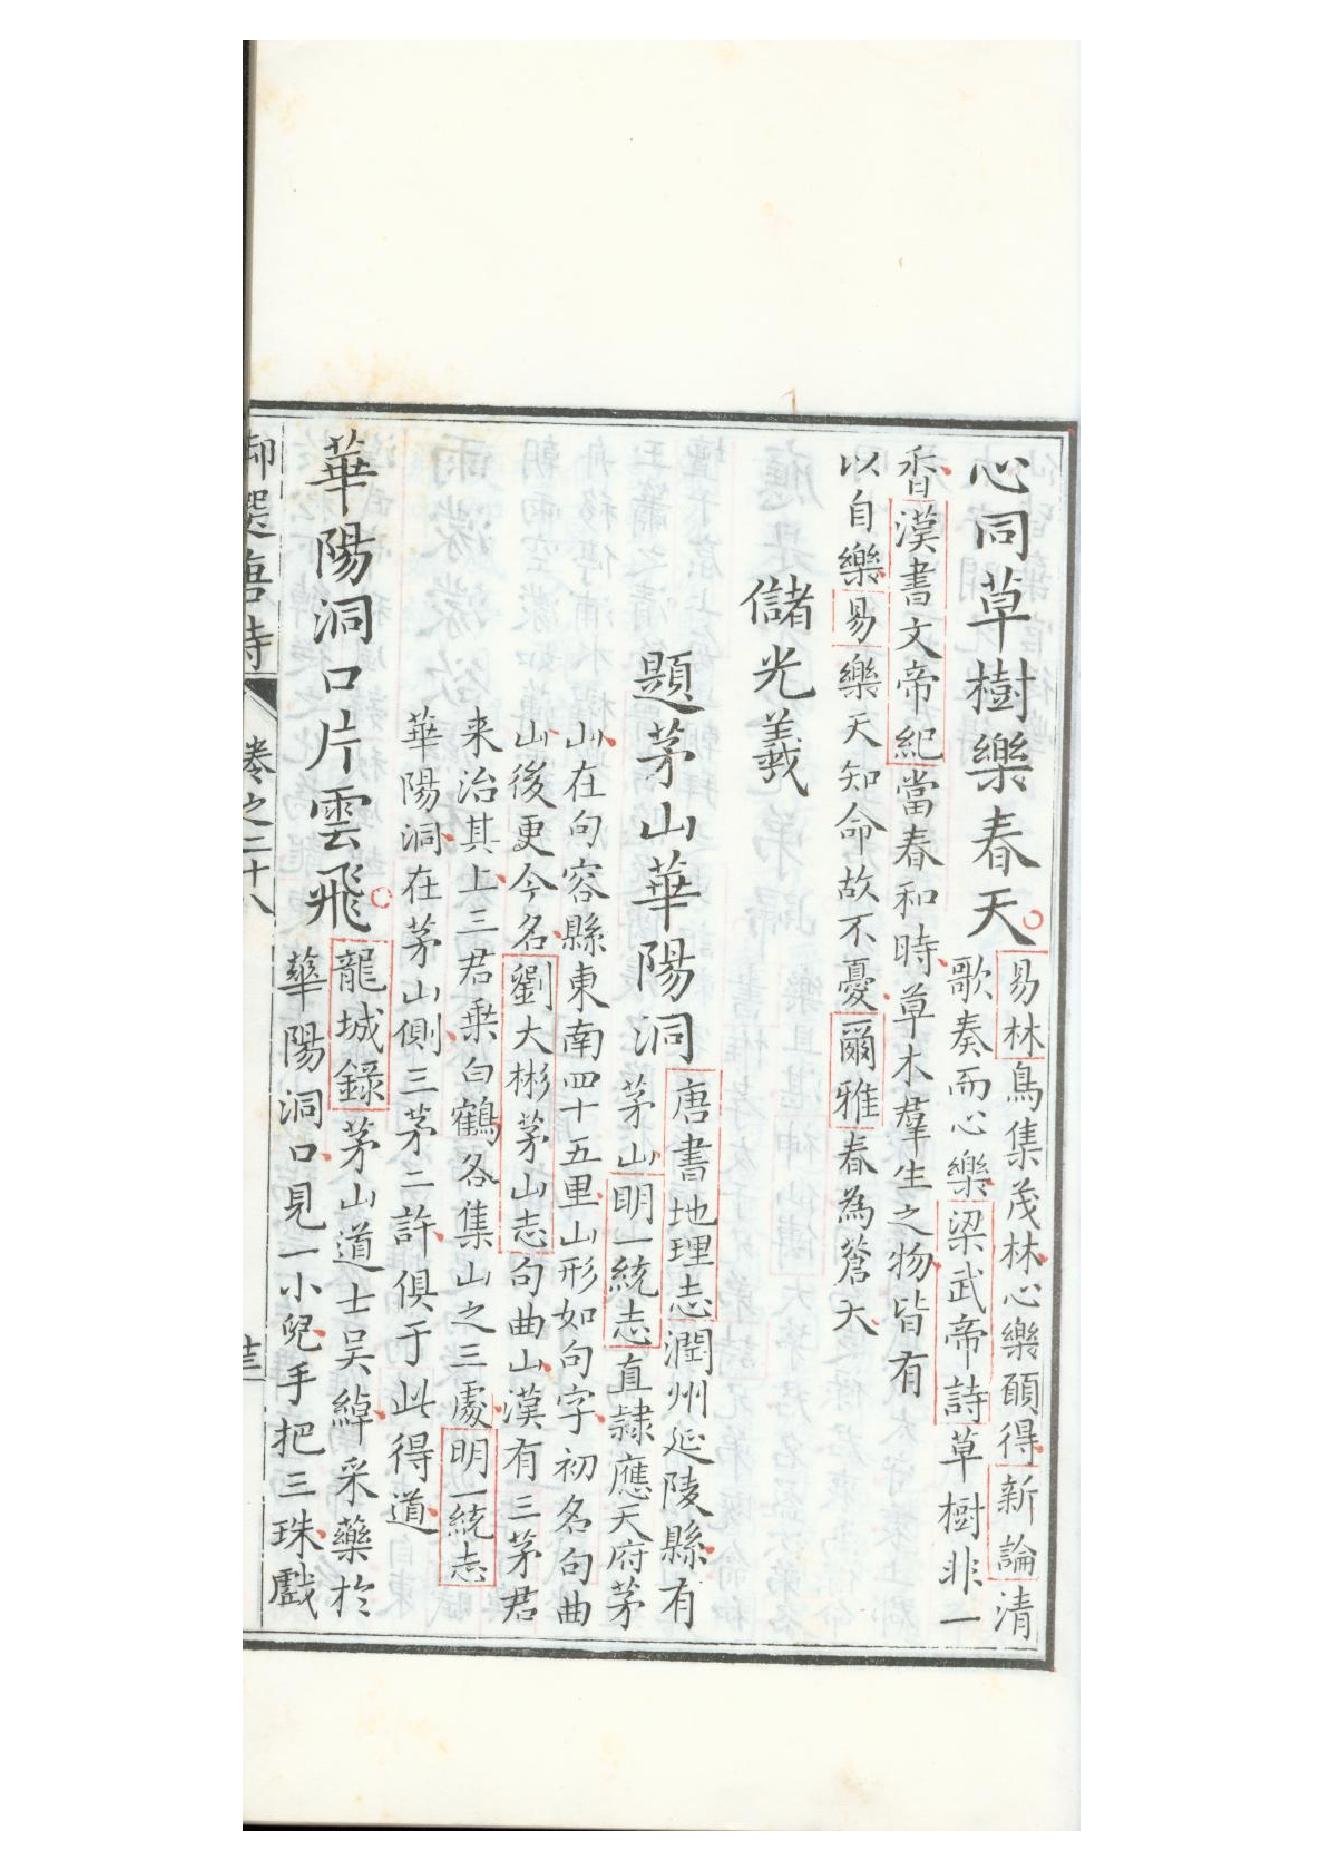 心同草樹樂春天
易林鳥集茂林心樂願得新論清
歌奏而心樂梁武帝詩草樹非一
香漢書文帝紀當春和時草木羣生之物皆有
以自樂易樂天知命故不憂爾雅春為蒼天
儲光羲
題茅山華陽洞
唐書地理志潤州延陵縣有
茅山明一統志直隷應天府茅
山在句容縣東南四十五里山形如句字初名句曲
山後更今名劉大彬茅山志句曲山漢有三茅君
来治其上三君乗白鶴各集山之三處明一統志
華陽洞在茅山側三茅二許俱于此得道
華陽洞口片雲飛
龍城錄茅山道士吴綽采藥於
華陽洞口見一小兒手把三珠戲
御選唐詩 卷之二十八 十三